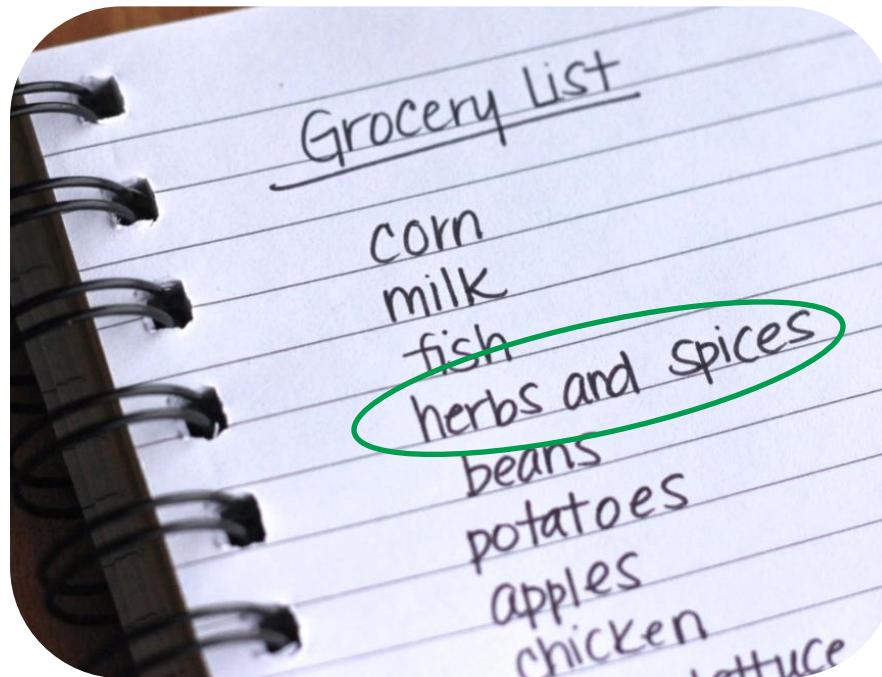 Grocery List
corn
milk
fish
herbs and spices
beans
potatoes
apples
chicken
lettuce